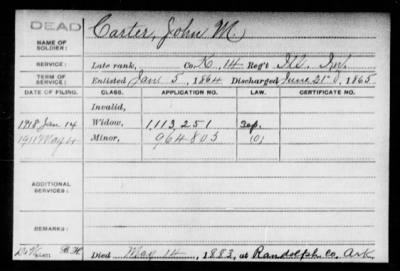 DEAD
NAME OF SOLDIER: Carter, John M.
SERVICE: Late rank, Co. K, 14 Reg't Ill. Inf.
TERM OF SERVICE: Enlisted Jan 5, 1864 Discharged June 21, 1865
DATE OF FILING. CLASS. APPLICATION NO. LAW. CERTIFICATE NO.
Invalid,
1918 Jan 14 Widow, 1,113,251 Sep.
1911 May Minor, 964803
ADDITIONAL SERVICES:
REMARKS:
Died May 14, 1883, at Randolph Co. Ark